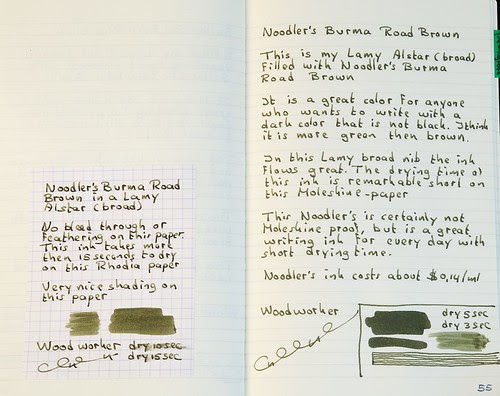 Noodler's Burma Road
Brown in a Lamy
Alstar (broad)
No bleed through or
Feathering on this paper.
This ink takes more
then 15 seconds to dry
on this Rhodia paper
Very nice shading on
this paper
Woodworker dry 10sec
dry 15sec
Noodler's Burma Road Brown
This is my Lamy Alstar (broad)
Filled with Noodler's Burma
Road Brown
It is a great color For anyone
who wants to write with a
dark color that is not black. I think
it is more green then brown.
In this Lamy broad nib the ink
Flows great. The drying time of
this ink is remarkable short on
this Moleskine-paper
This Noodler's is certainly not
Moleskine proof, but is a great
writing ink for every day with
short drying time.
Noodler's ink costs about $0,14/ml
Woodworker
dry 5 sec
dry 3 sec
55